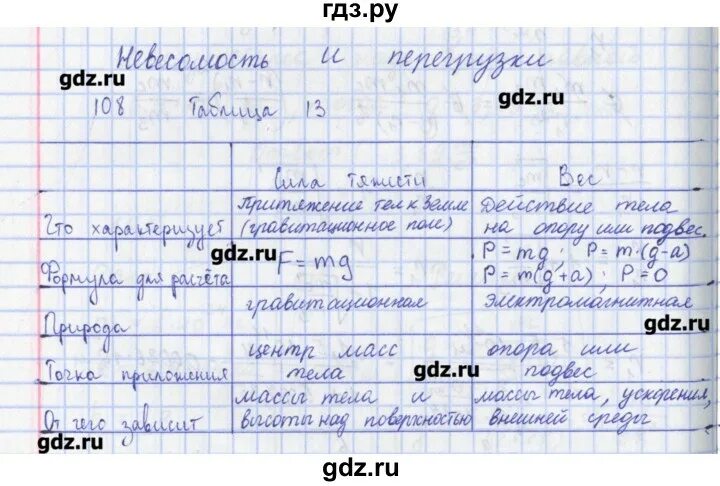 гдз.ру
Невесомость и перегрузки
gdz.ru
gdz.ru
108 Таблица 13
Сила тяжести Вес
Что характеризует Притяжение тел к Земле (гравитационное поле) Действие тела на опору или подвес.
gdz.ru
Формула для расчёта F = mg P = mg; P = m·(g-a)
P = m(g+a); P = 0
Природа гравитационная электромагнитная
gdz.ru
Точка приложения центр масс тела опора или подвес
gdz.ru
От чего зависит массы тела и высоты над поверхностью массы тела, ускорения, внешней среды
gdz.ru
gdz.ru